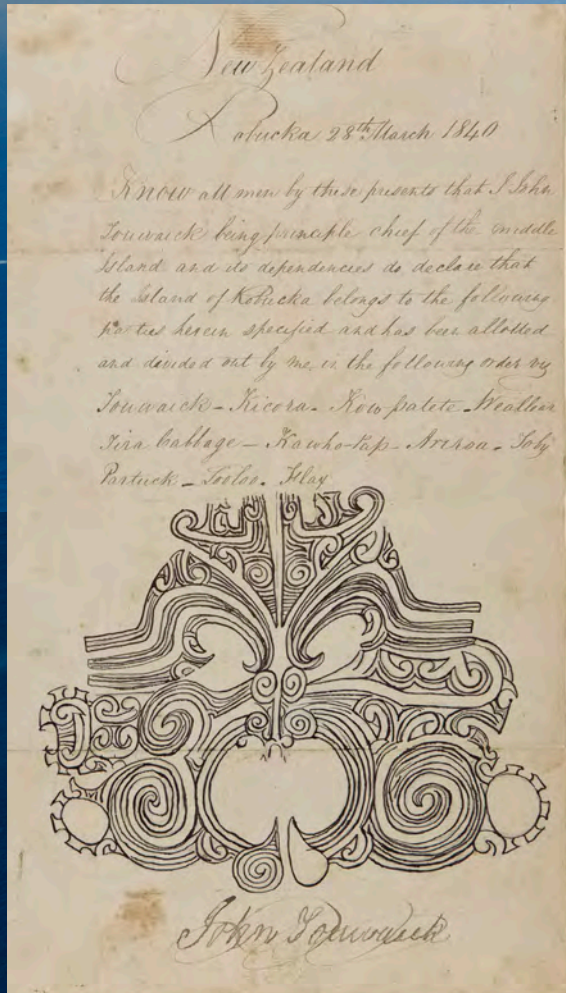 New Zealand
Robucka 28th March 1840
Know all men by these presents that I John
Touwaick being principle chief of the middle
Island and its dependencies do declare that
the Island of Robucka belongs to the following
parties herein specified and has been allotted
and divided out by me in the following order viz
Touwaick - Kicora - Kow patete - Weathar
Tira Cabbage - Kawho-tap - - Toby
Partuck - Tooloo - Hay
John Touwaick